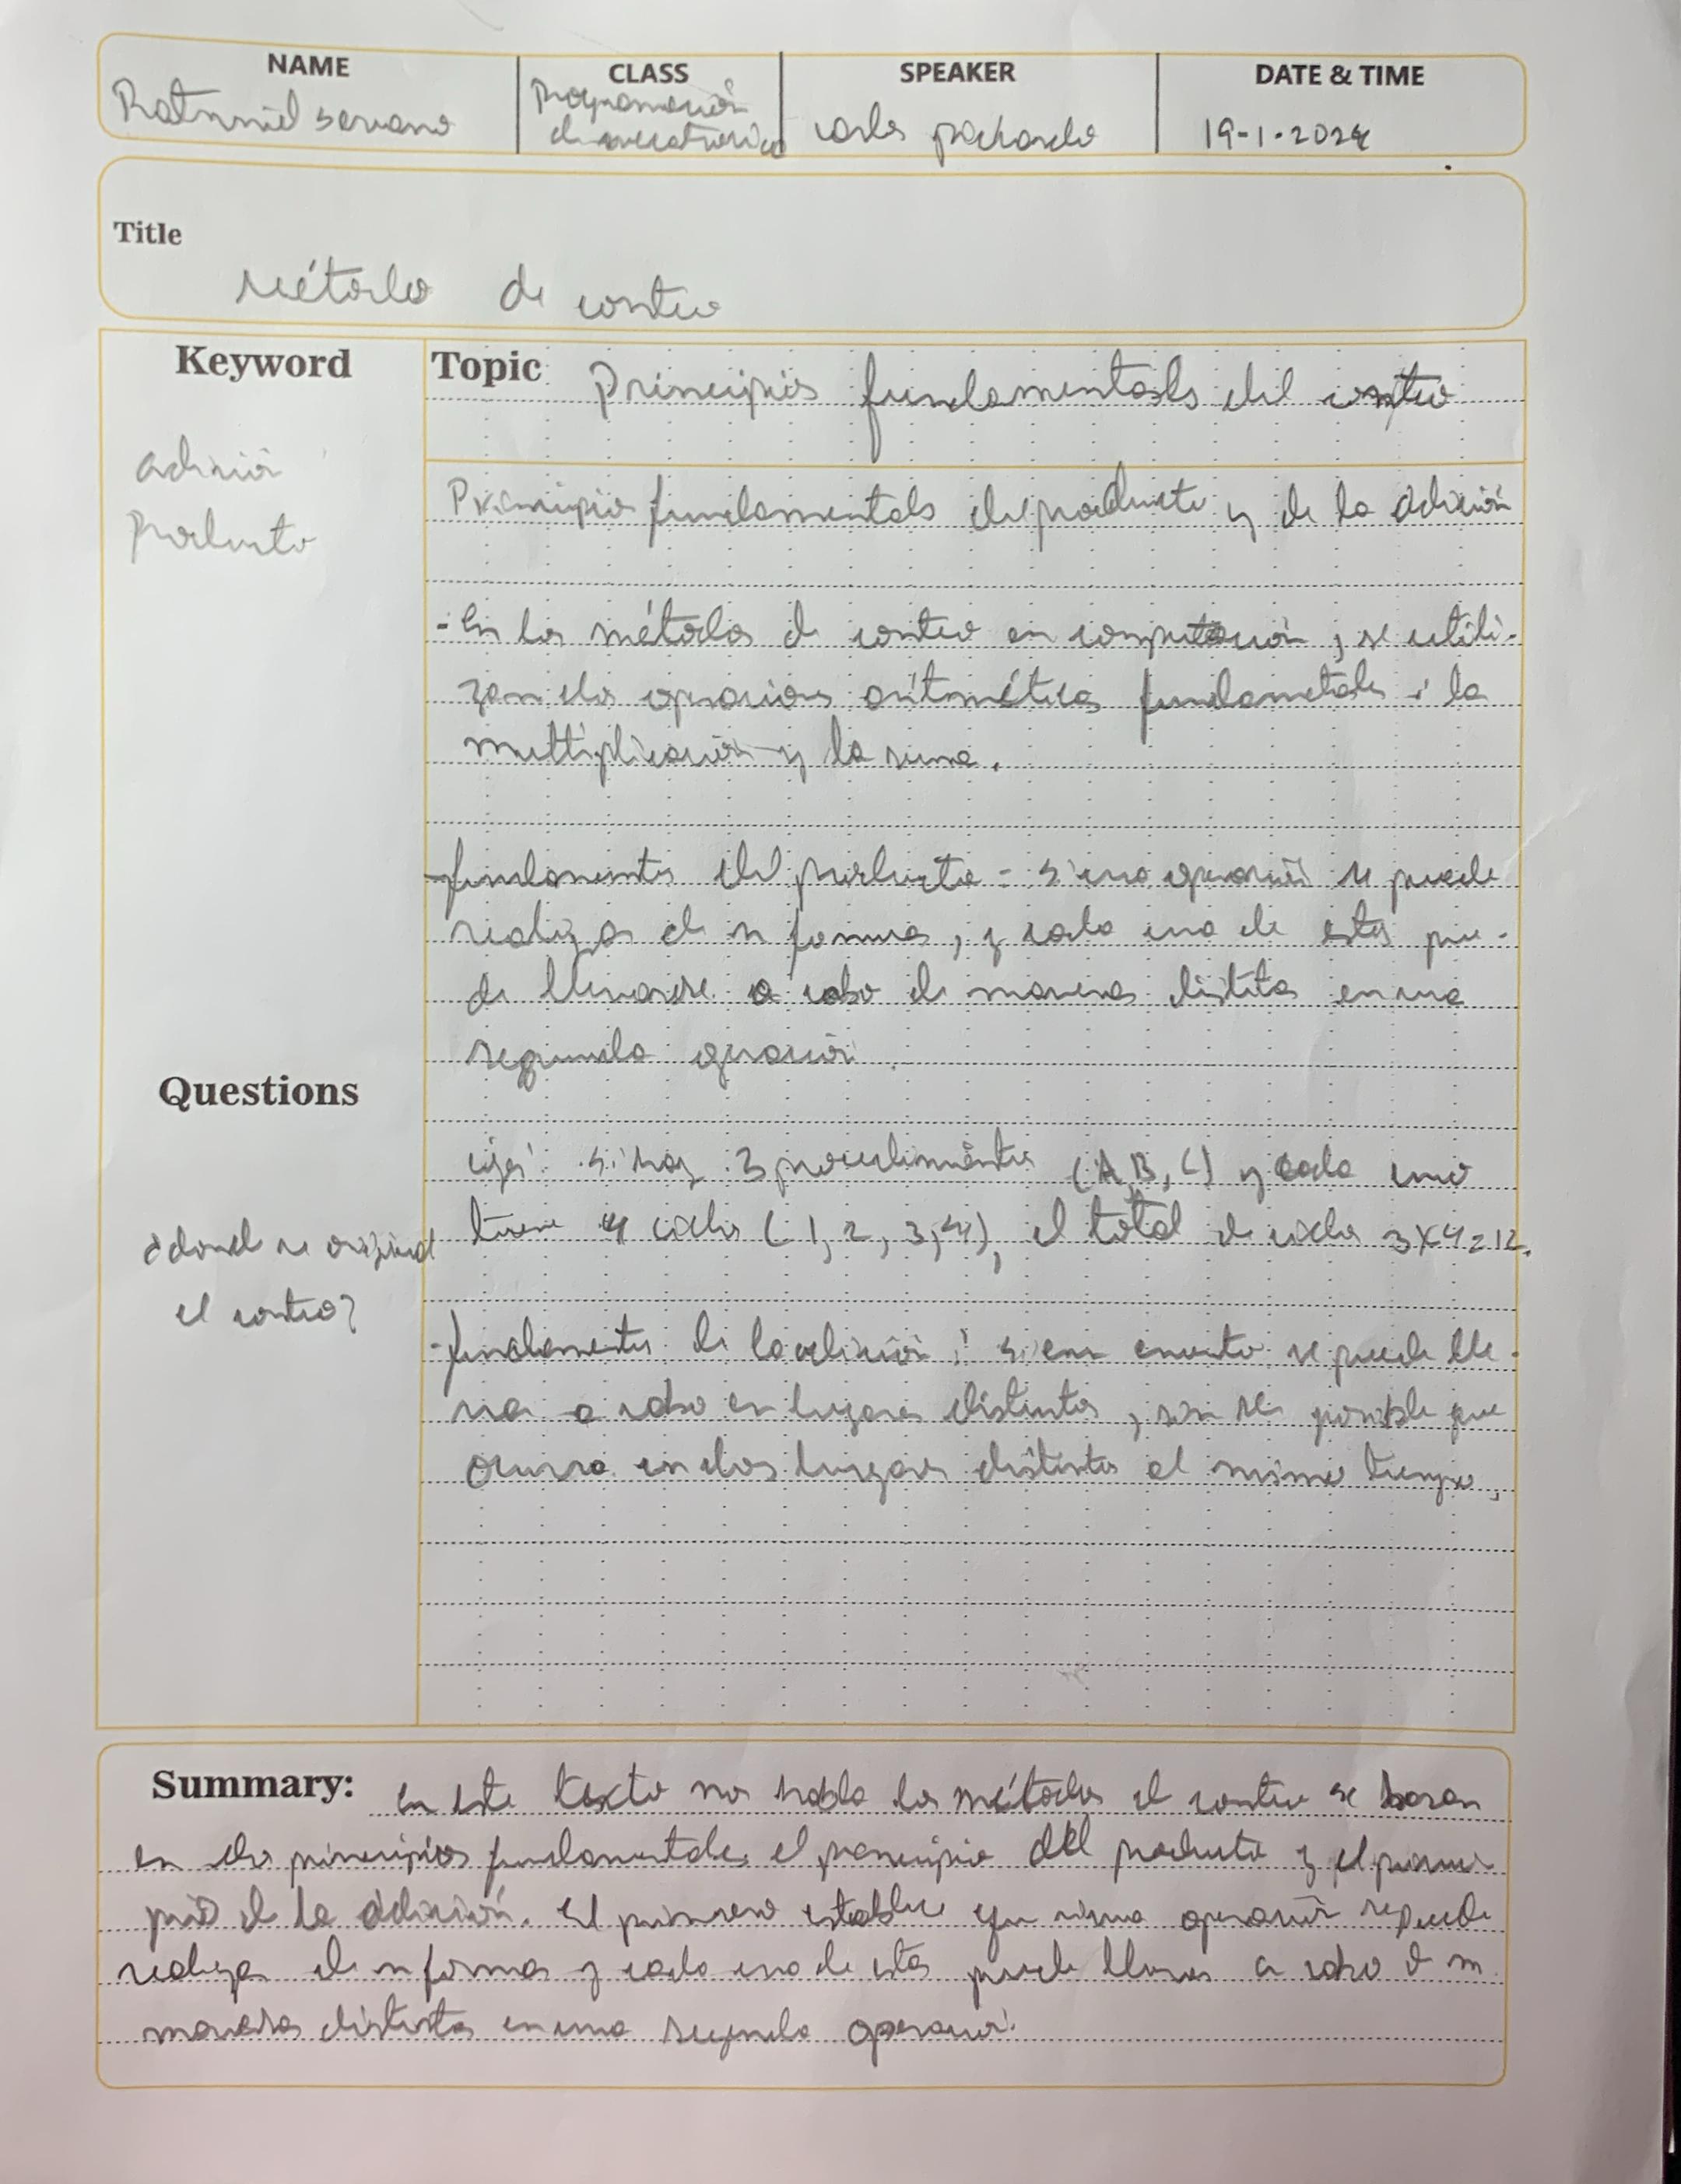 NAME CLASS SPEAKER DATE & TIME
serrano Programación 19-1-2024
Title
Método de conteo
Keyword
adición
Producto
Topic Principios fundamentales del conteo
Principios fundamentales del producto y de la adición
- En los métodos de conteo en computación, se utili-
zan dos operaciones aritméticas fundamentales: la
multiplicación y la suma.
- fundamentos del producto - si una operación se puede
realizar de n formas, y cada una de estas pue-
de llevarse a cabo de maneras distintas en una
segunda operación
Questions
¿dónde se origina
el conteo?
ej: si hay 3 procedimientos (A, B, C) y cada uno
tiene 4 ciclos (1, 2, 3, 4), el total de ciclos 3x4=12.
- fundamentos de la adición: si un evento se puede lle-
var a cabo en lugares distintos, sin ser posible que
ocurra en dos lugares distintos al mismo tiempo,
Summary: en este texto nos habla los métodos de conteo se basan
en dos principios fundamentales el principio del producto y el princi
pio de la adición. El primero establece que si una operación se puede
realizar de n formas y cada una de estas puede llevar a cabo de m
maneras distintas en una segunda operación.